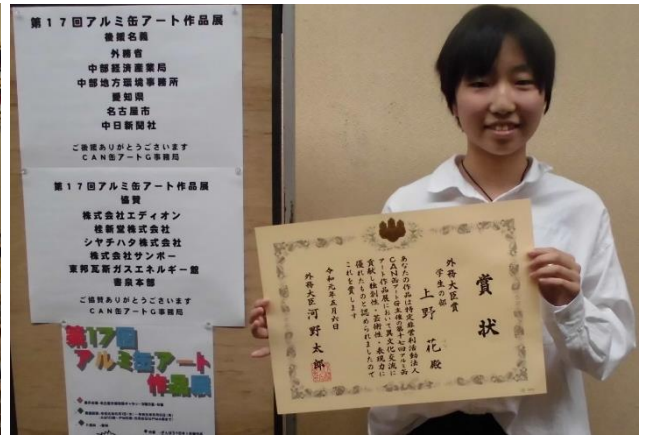 第17回アルミ缶アート作品展
後援名義
外務省
中部経済産業局
中部地方環境事務所
愛知県
名古屋市
中日新聞社
ご後援ありがとうございます
CAN缶アートG事務局
第17回アルミ缶アート作品展
協賛
株式会社エディオン
桂新堂株式会社
シヤチハタ株式会社
株式会社サンポー
東邦瓦斯ガスエネルギー館
善泉本部
ご協賛ありがとうございます
CAN缶アートG事務局
第17回
アルミ缶アート
作品展
賞状
外務大臣賞
学生の部
上野 花 殿
あなたの作品は特定非営利活動法人
CAN缶アートG主催の第十七回アルミ缶
アート作品展において異文化交流に
貢献し独創性・芸術性・表現力に
優れたものと認められましたので
これを賞します
令和元年五月六日
外務大臣 河野太郎